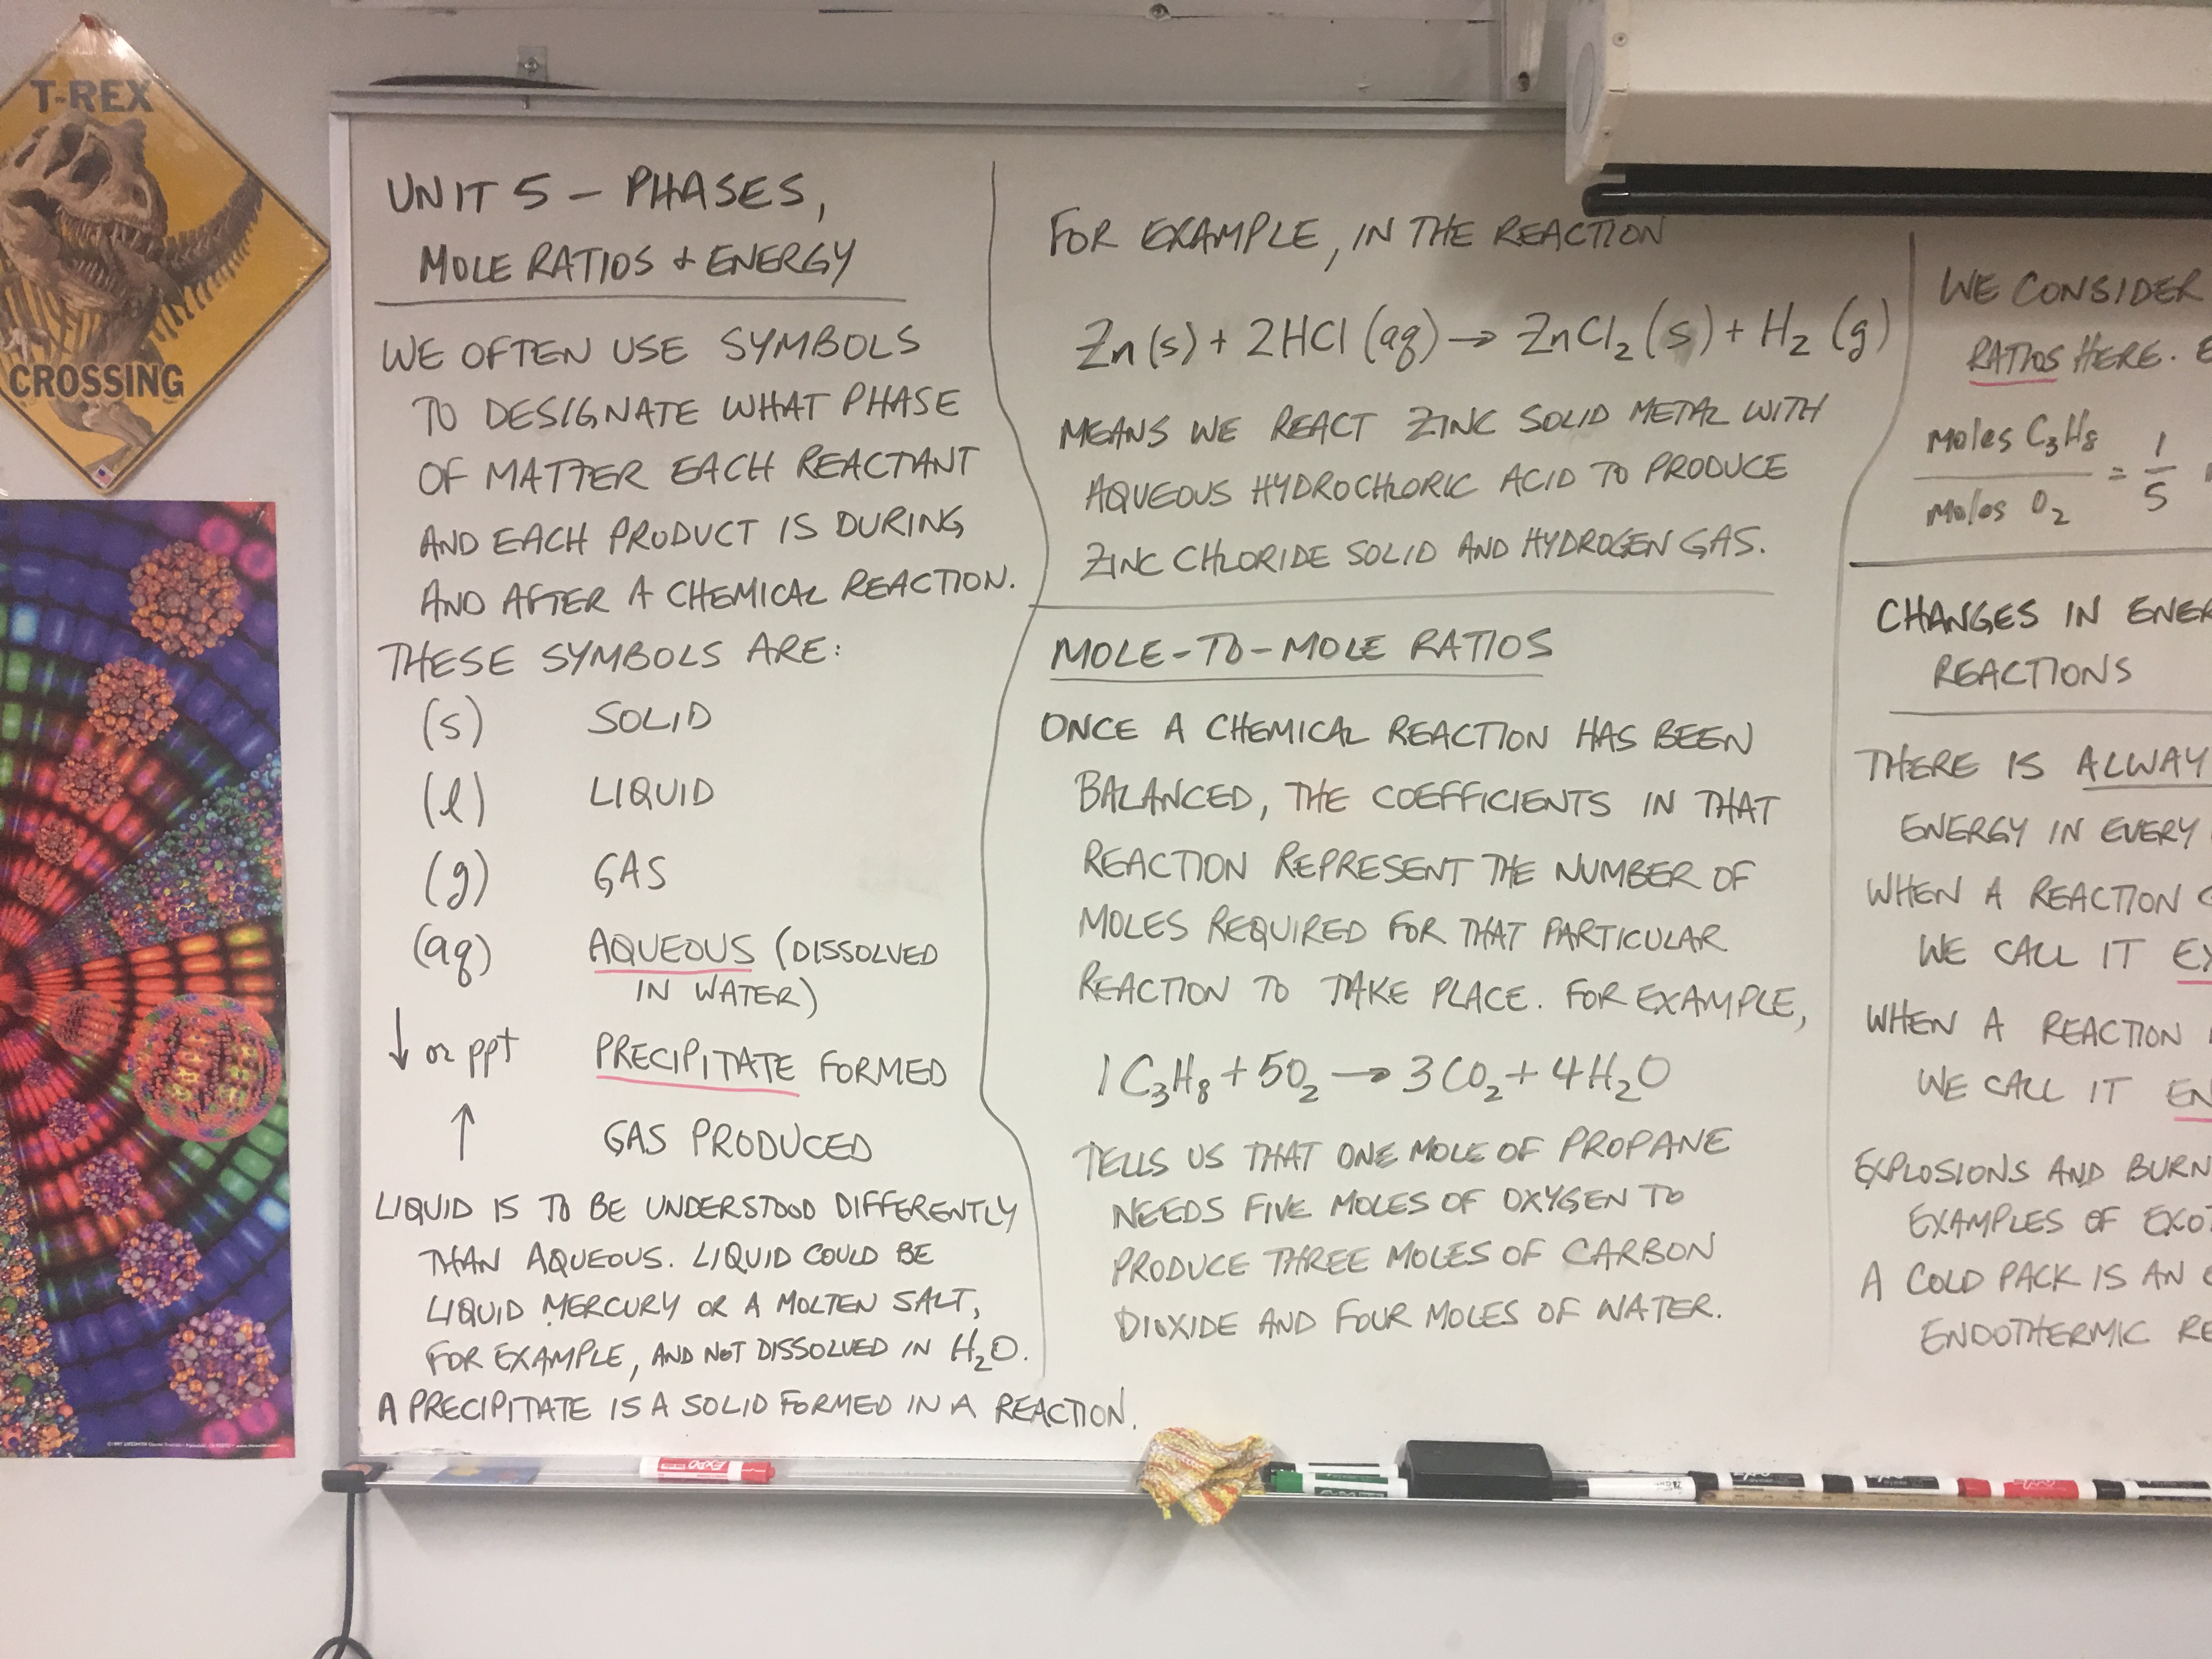 T-REX
CROSSING
UNIT 5 – PHASES,
MOLE RATIOS + ENERGY
WE OFTEN USE SYMBOLS
TO DESIGNATE WHAT PHASE
OF MATTER EACH REACTANT
AND EACH PRODUCT IS DURING
AND AFTER A CHEMICAL REACTION.
THESE SYMBOLS ARE:
(s) SOLID
(l) LIQUID
(g) GAS
(aq) AQUEOUS (DISSOLVED
IN WATER)
↓ or ppt PRECIPITATE FORMED
↑ GAS PRODUCED
LIQUID IS TO BE UNDERSTOOD DIFFERENTLY
THAN AQUEOUS. LIQUID COULD BE
LIQUID MERCURY OR A MOLTEN SALT,
FOR EXAMPLE, AND NOT DISSOLVED IN H₂O.
A PRECIPITATE IS A SOLID FORMED IN A REACTION.
FOR EXAMPLE, IN THE REACTION
Zn(s) + 2HCl (aq) → ZnCl₂ (s) + H₂ (g)
MEANS WE REACT ZINC SOLID METAL WITH
AQUEOUS HYDROCHLORIC ACID TO PRODUCE
ZINC CHLORIDE SOLID AND HYDROGEN GAS.
MOLE-TO-MOLE RATIOS
ONCE A CHEMICAL REACTION HAS BEEN
BALANCED, THE COEFFICIENTS IN THAT
REACTION REPRESENT THE NUMBER OF
MOLES REQUIRED FOR THAT PARTICULAR
REACTION TO TAKE PLACE. FOR EXAMPLE,
1 C₃H₈ + 5O₂ → 3CO₂ + 4H₂O
TELLS US THAT ONE MOLE OF PROPANE
NEEDS FIVE MOLES OF OXYGEN TO
PRODUCE THREE MOLES OF CARBON
DIOXIDE AND FOUR MOLES OF WATER.
WE CONSIDER
RATIOS HERE. E
moles C₃H₈ / moles O₂ = 1/5
CHANGES IN ENER
REACTIONS
THERE IS ALWAY
ENERGY IN EVERY
WHEN A REACTION
WE CALL IT EX
WHEN A REACTION
WE CALL IT EN
EXPLOSIONS AND BURN
EXAMPLES OF EXOT
A COLD PACK IS AN
ENDOTHERMIC RE
EXPO